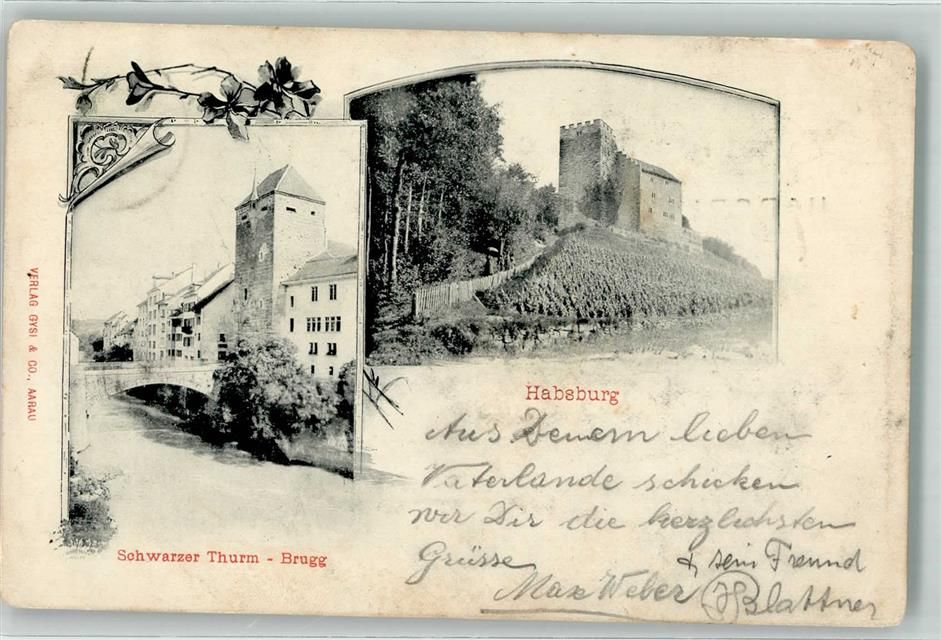 VERLAG GYSI & CO., AARAU
Schwarzer Thurm - Brugg
Habsburg
Aus Deinem lieben
Vaterlande schicken
wir Dir die herzlichsten
Grüsse
& sein Freund
Max Weber
Blattner